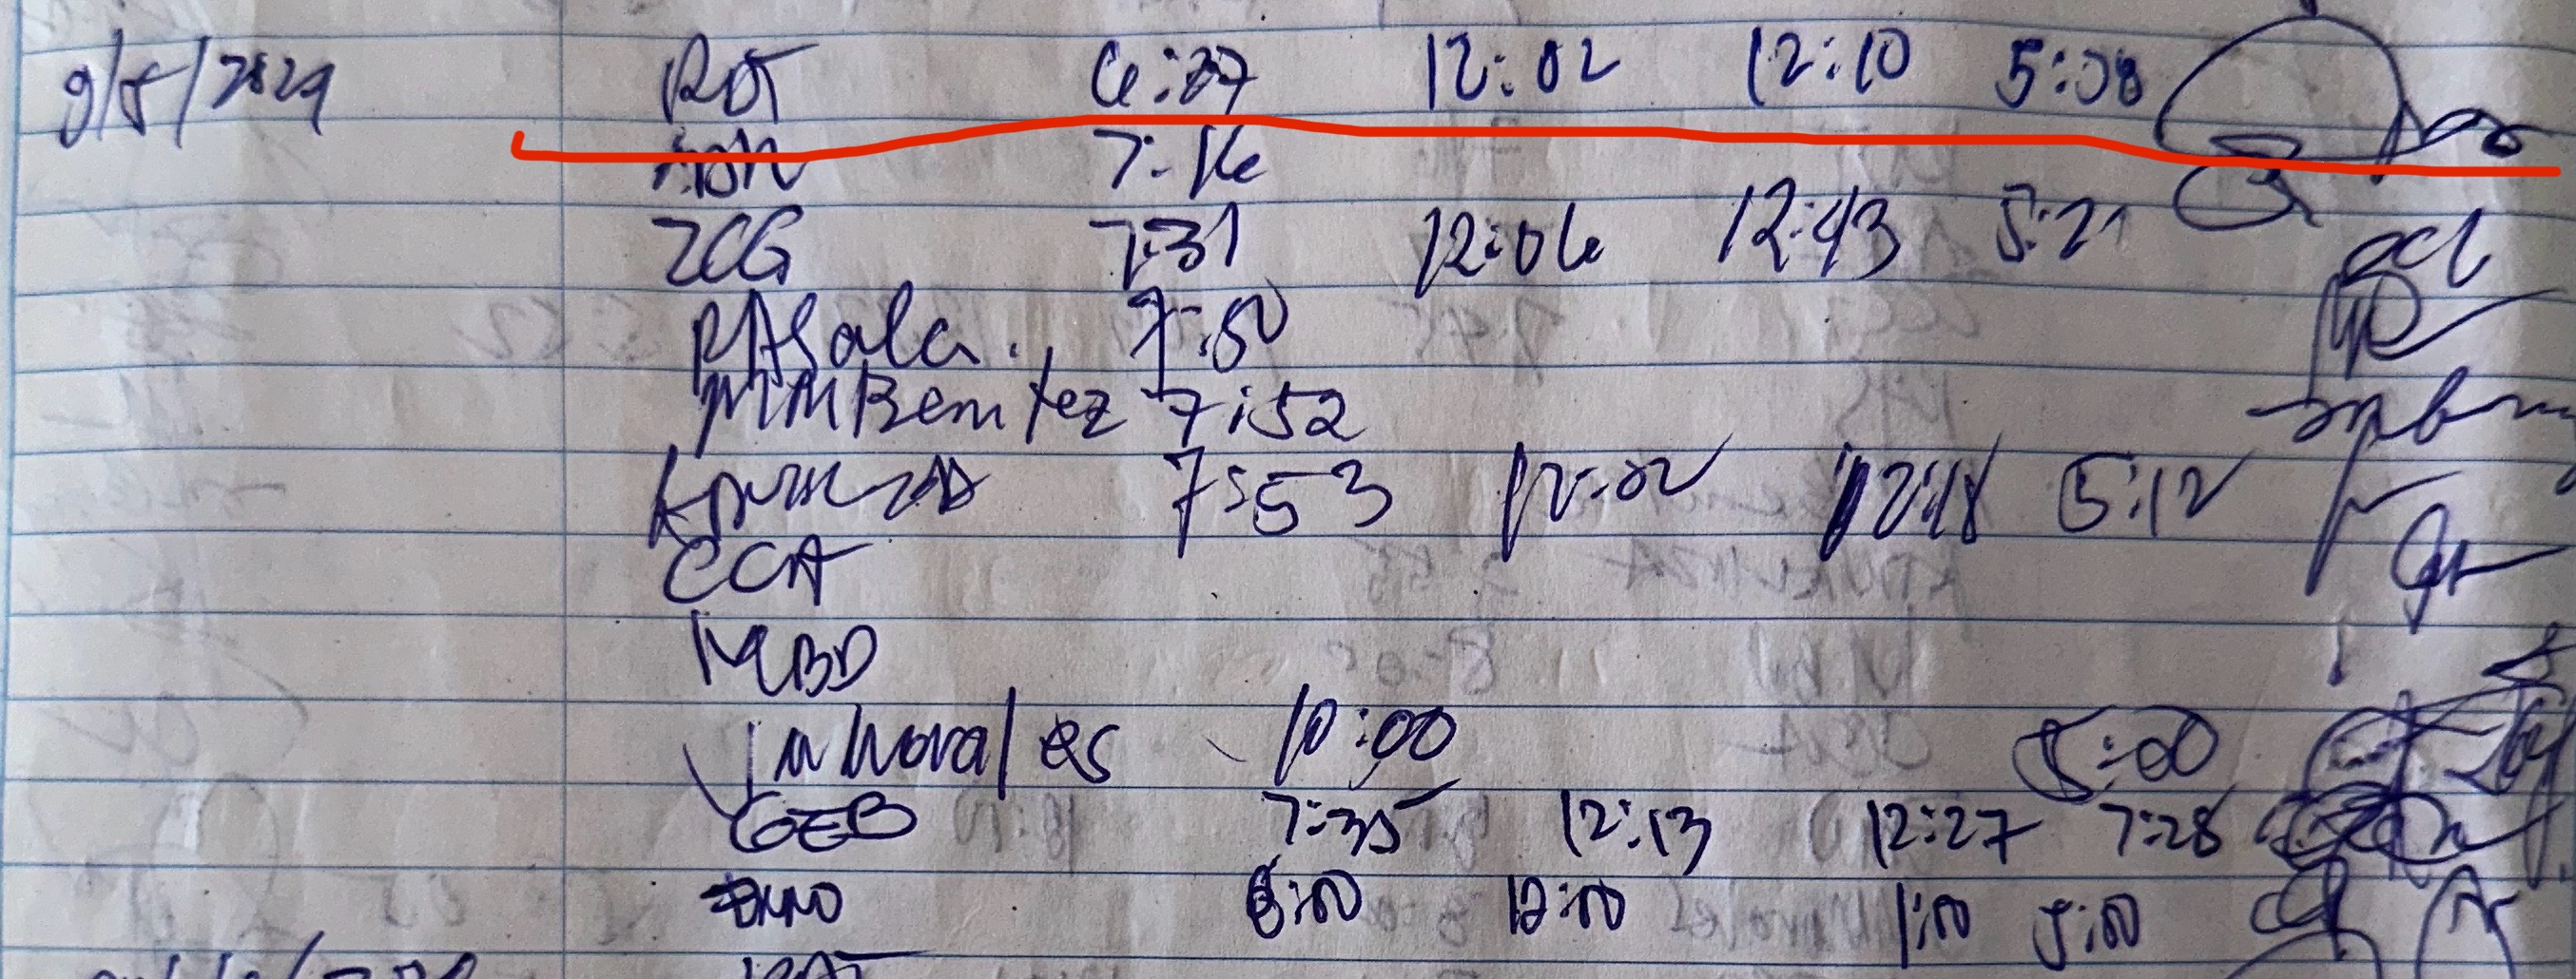 9/5/2024 RDT 6:37 12:02 12:10 5:08
7:16
ZCG 7:31 12:06 12:43 5:21
PASala. 7:50
MMBenitez 7:52
7:53 12:02 12:18 5:12
CCA
MBD
Morales 10:00 5:00
GEB 7:35 12:13 12:27 7:28
8:00 12:00 1:00 5:00